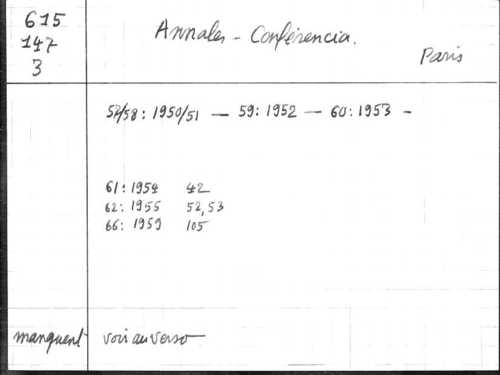 615
147
3
Annales - Conférencia.
Paris
57/58 : 1950/51 — 59 : 1952 — 60 : 1953 -
61 : 1954 42
62 : 1955 52, 53
66 : 1959 105
manquent voir au verso